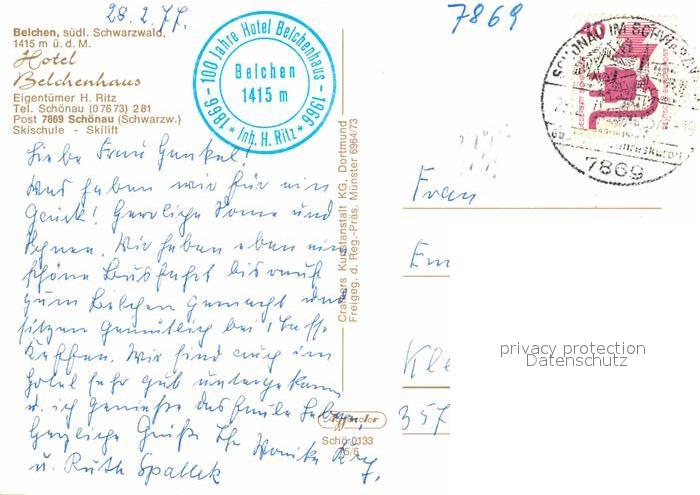 28.2.77.
7869
Belchen, südl. Schwarzwald,
1415 m ü. d. M.
Hotel
Belchenhaus
Eigentümer H. Ritz
Tel. Schönau (0 76 73) 2 81
Post 7869 Schönau (Schwarzw.)
Skischule - Skilift
1866 - 100 Jahre Hotel Belchenhaus - 1966
Belchen
1415 m
* Inh. H. Ritz *
SCHÖNAU IM SCHWARZW
7869
Liebe Frau Gunkel!
Was haben wir für ein
Glück! Herrliche Sonne und
Schnee. Wir haben eben eine
schöne Busfahrt bis rauf
zum Belchen gemacht und
sitzen gemütlich bei 1 Tasse
Kaffee. Wir sind auch im
Hotel sehr gut untergekommen
u. ich genieße das faule Leben.
Herzliche Grüße Ihre Monika
u. Ruth Spallek
Cramers Kunstanstalt KG, Dortmund
Freigeg. d. Reg.-Präs. Münster 6964/73
Schö 0133
Frau
Em
Kle
357
privacy protection
Datenschutz